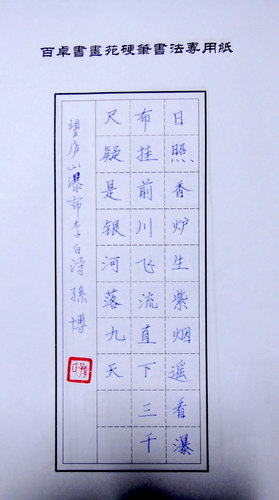 百卓書畫苑硬筆書法專用紙
日照香炉生紫烟遥看瀑
布挂前川飞流直下三千
尺疑是银河落九天
望庐山瀑布李白诗孫博